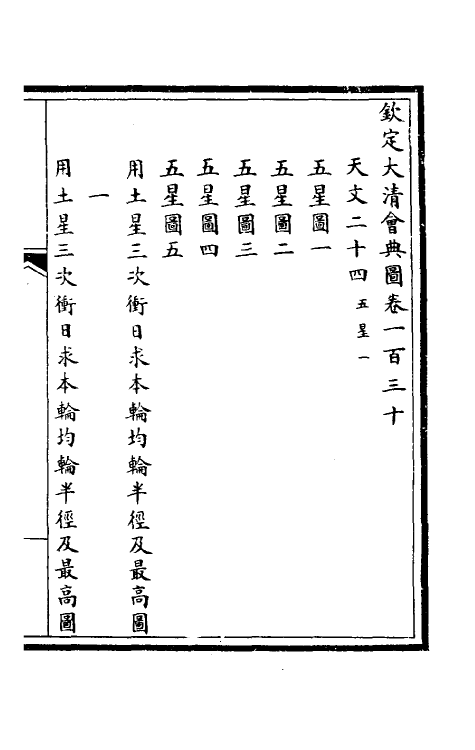 欽定大清會典圖卷一百三十
天文二十四五星一
五星圖一
五星圖二
五星圖三
五星圖四
五星圖五
用土星三次衝日求本輪均輪半徑及最高圖
一
用土星三次衝日求本輪均輪半徑及最高圖